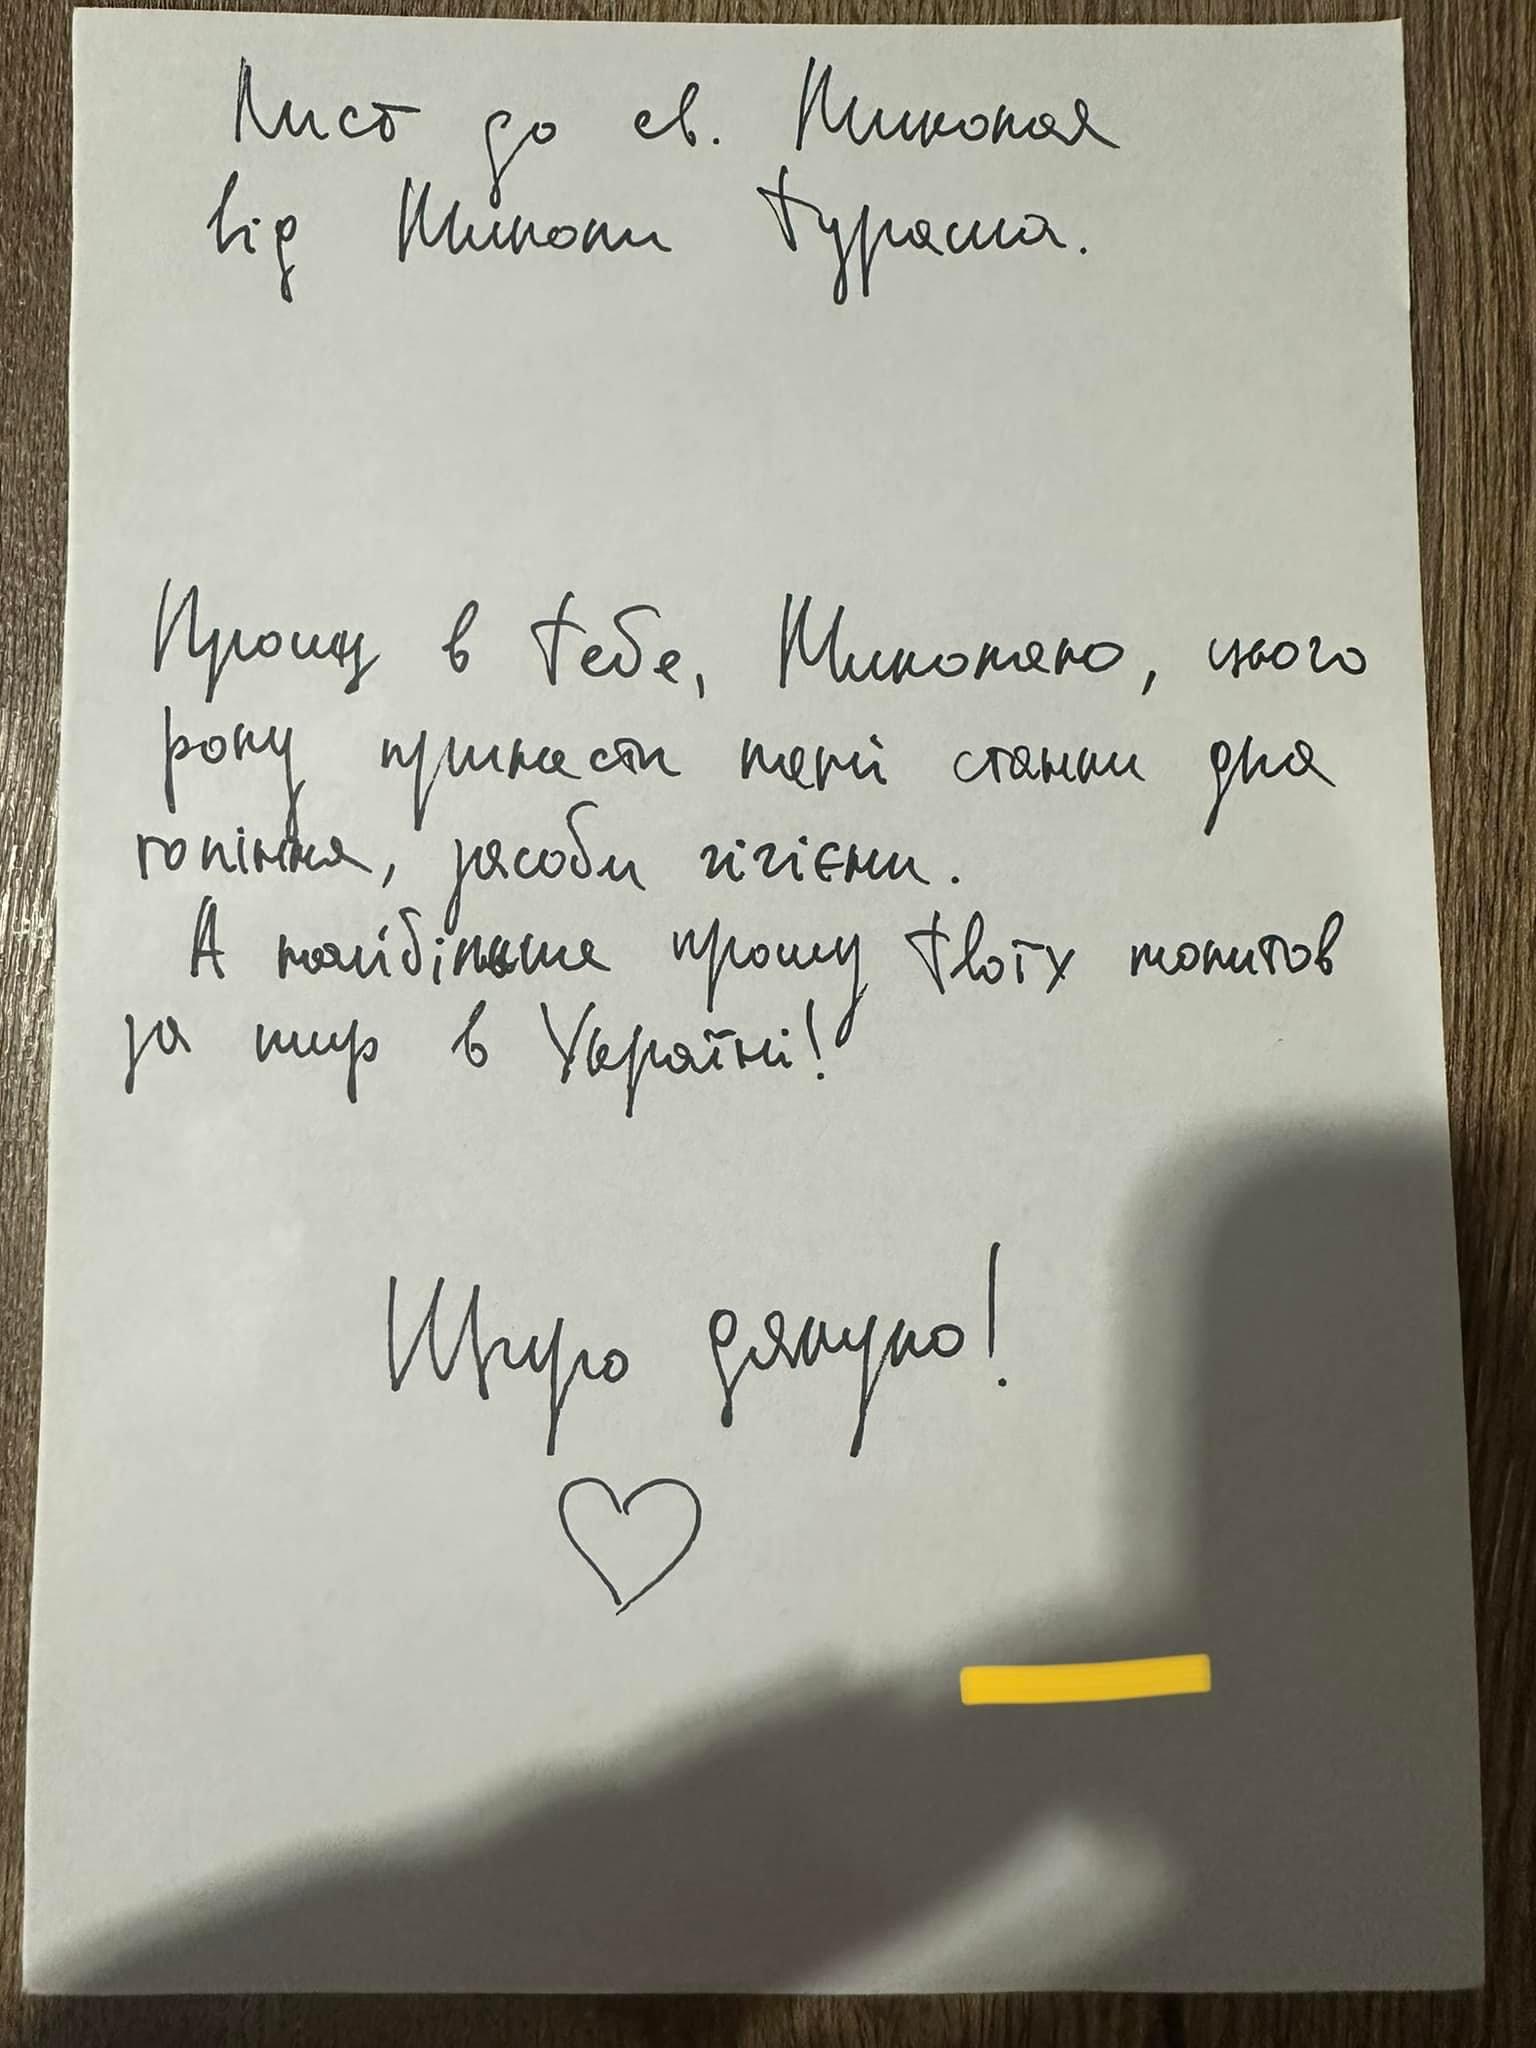 Лист до св. Миколая
від Миколи Гураша.
Прошу в Тебе, Миколаю, цього
року принести мені станки для
гоління, засоби гігієни.
А найбільше прошу Твоїх молитов
за мир в Україні!
Щиро дякую!